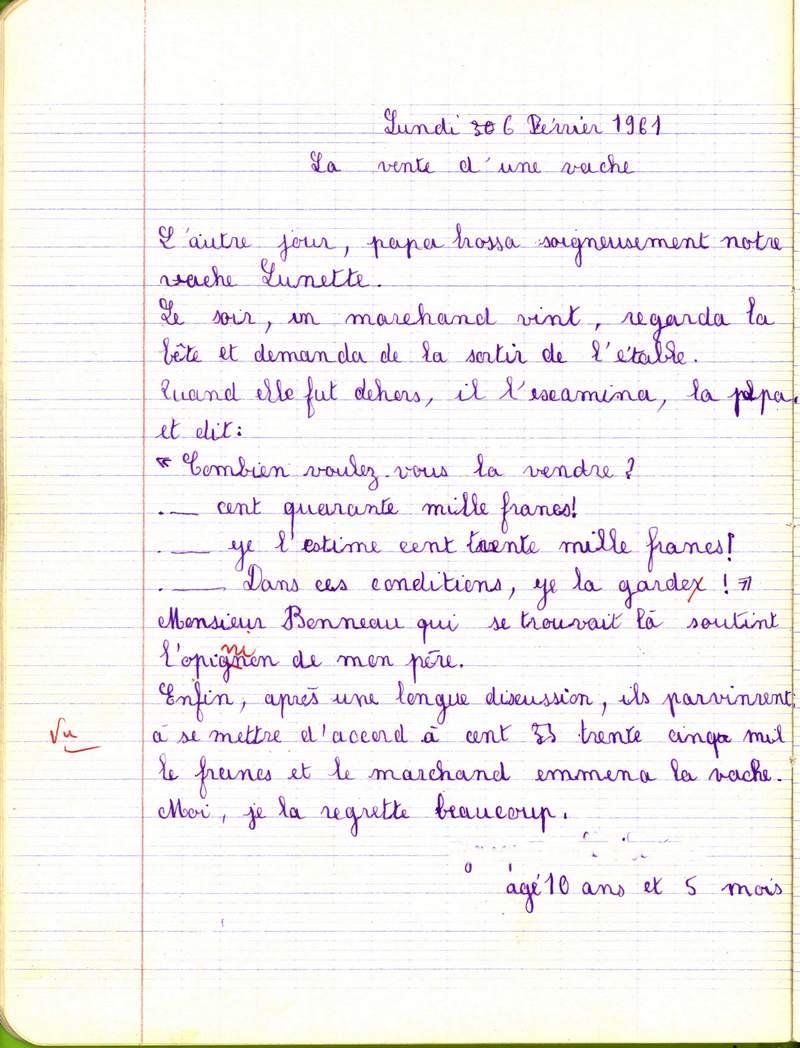 Lundi 30 6 Février 1961
La vente d'une vache
L'autre jour, papa brossa soigneusement notre
vache Lunette.
Le soir, un marchand vint, regarda la
bête et demanda de la sortir de l'étable.
Quand elle fut dehors, il l'escamina, la palpa.
et dit:
« Combien voulez-vous la vendre ?
.— cent quarante mille francs!
.— ye l'estime cent trente mille francs!
.— Dans ces conditions, ye la gardex ! »
Monsieur Bonneau qui se trouvait là soutint
l'opignon de mon père.
ni
Enfin, après une longue discussion, ils parvinrent
à se mettre d'accord à cent 33 trente cinq mil
Vu
le francs et le marchand emmena la vache.
Moi, je la regrette beaucoup.
âgé 10 ans et 5 mois